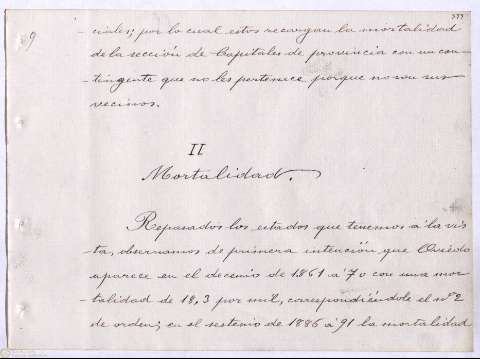 9
- ciales; por lo cual estos recargan la mortalidad
de la sección de Capitales de provincia con un con-
- tingente que no les pertenece, porque no son sus
vecinos.
II
Mortalidad.
Repasados los estados que tenemos á la vis
ta, observamos de primera intención que Oviedo
aparece en el decenio de 1861 á 70 con una mor-
- talidad de 18,3 por mil, correspondiéndole el nº 2
de orden; en el sestenio de 1886 á 91 la mortalidad